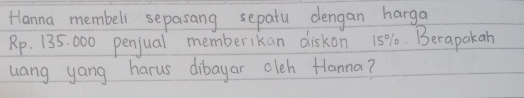 Hanna membeli sepasang sepatu dengan harga
Rp. 135.000 penjual memberikan diskon 15%. Berapakah
uang yang harus dibayar oleh Hanna?